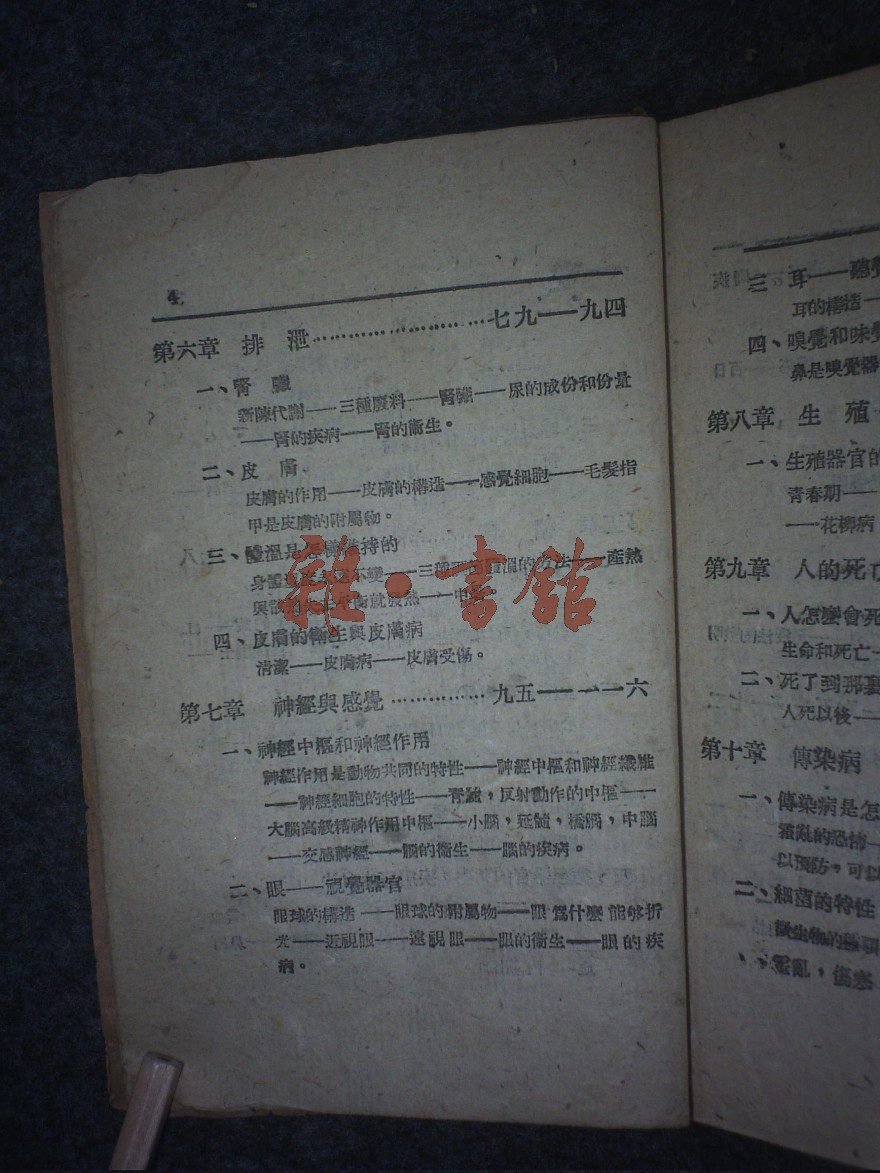 4
第六章 排 泄……………………七九——九四
一、腎 臟
新陳代謝——三種廢料——腎臟——尿的成份和份量
——腎的疾病——腎的衞生。
二、皮 膚
皮膚的作用——皮膚的構造——感覺細胞——毛髮指
甲是皮膚的附屬物。
三、體溫是怎樣維持的
身體 不變——三種 體溫的方法——產熱
與 平衡就發熱——中
四、皮膚的衞生與皮膚病
清潔——皮膚病——皮膚受傷。
第七章 神經與感覺……………九五——一一六
一、神經中樞和神經作用
神經作用是動物共同的特性——神經中樞和神經纖維
——神經細胞的特性——脊髓，反射動作的中樞——
大腦高級精神作用中樞——小腦，延髓，橋腦，中腦
——交感神經——腦的衞生——腦的疾病。
二、眼——視覺器官
眼球的構造——眼球的附屬物——眼爲什麼能够折
光——近視眼——遠視眼——眼的衞生——眼的疾
病。
三 耳——聽覺
耳的構造——
四、嗅覺和味覺
鼻是嗅覺器
第八章 生 殖
一、生殖器官的
青春期——
——花柳病
第九章 人的死亡
一、人怎麼會死
生命和死亡—
二、死了到那裏
人死以後——
第十章 傳染病
一、傳染病是怎
霍亂的恐怖—
以預防，可以
二、細菌的特性
微生物的種類
、霍亂，傷寒
雜·書館